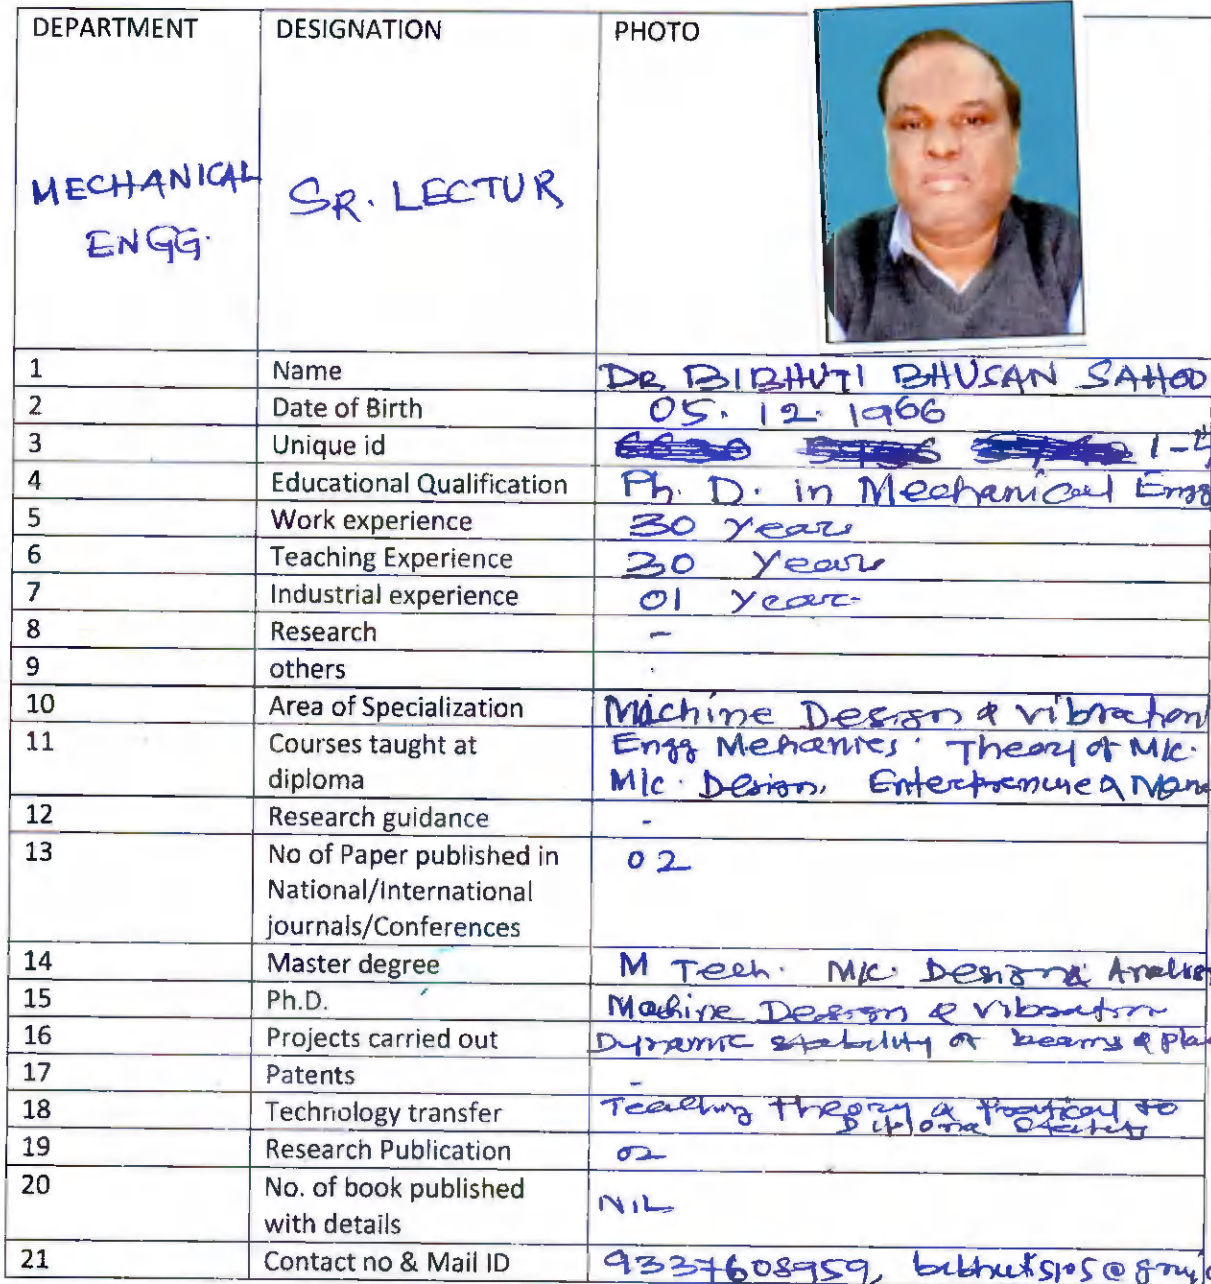 DEPARTMENT DESIGNATION PHOTO
MECHANICAL SR. LECTUR
ENGG.
1 Name DR BIBHUTI BHUSAN SAHOO
2 Date of Birth 05.12.1966
3 Unique id
4 Educational Qualification Ph. D. in Mechanical Engg
5 Work experience 30 Years
6 Teaching Experience 30 Years
7 Industrial experience 01 Year
8 Research -
9 others
10 Area of Specialization Machine Design & vibration
11 Courses taught at Engg Mehanies. Theory of M/c.
diploma M/c. Design.
12 Research guidance -
13 No of Paper published in 02
National/International
journals/Conferences
14 Master degree M Tech. M/c. Design &
15 Ph.D. Machine Design & Vibration
16 Projects carried out Dynamic stability of beams &
17 Patents -
18 Technology transfer Teaching theory & Practical to
Diploma
19 Research Publication 02
20 No. of book published NIL
with details
21 Contact no & Mail ID 9337608959,